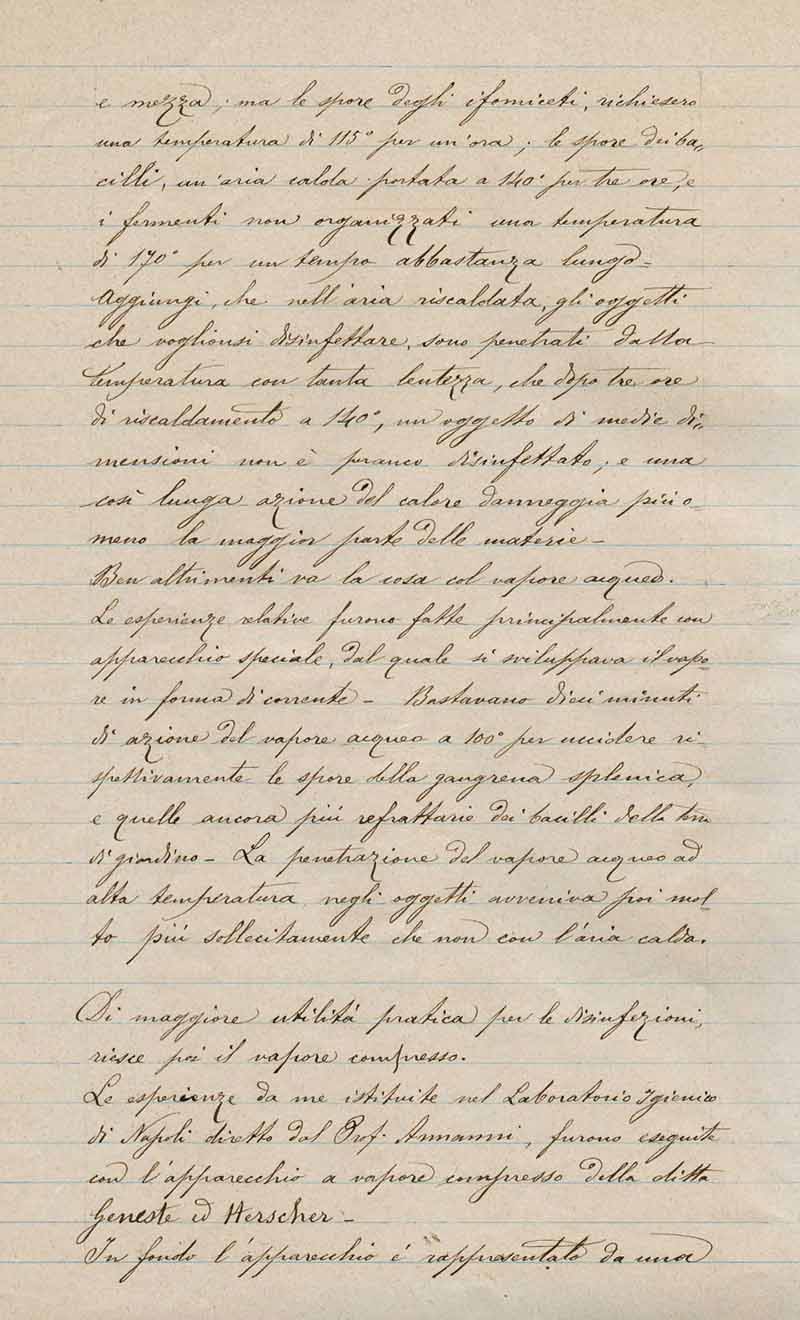 e mezza; ma le spore degli ifomiceti, richiesero
una temperatura di 115° per un'ora; le spore dei ba„
cilli, un'aria calda portata a 140° per tre ore, e
i fermenti non organizzati una temperatura
di 170° per un tempo abbastanza lungo-
Aggiungi, che nell'aria riscaldata, gli oggetti
che voglionsi disinfettare, sono penetrati dalla
temperatura con tanta lentezza, che dopo tre ore
di riscaldamento a 140°, un oggetto di medie di„
mensioni non è peranco disinfettato; e una
così lunga azione del calore danneggia più o
meno la maggior parte delle materie-
Ben altrimenti va la cosa col vapore acqueo.
Le esperienze relative furono fatte principalmente con
apparecchio speciale, dal quale si sviluppava il vapo-
re in forma di corrente- Bastavano dieci minuti
di azione del vapore acqueo a 100° per uccidere ri-
spettivamente le spore della gangrena splenica,
e quelle ancora più refrattarie dei bacilli della terra
di giardino- La penetrazione del vapore acqueo ad
alta temperatura negli oggetti avveniva poi mol
to più sollecitamente che non con l'aria calda.
Di maggiore utilità pratica per le disinfezioni,
riesce poi il vapore compresso.
Le esperienze da me istituite nel Laboratorio Igienico
di Napoli diretto dal Prof. Armanni, furono eseguite
con l'apparecchio a vapore compresso della ditta
Geneste ed Herscher-
In fondo l'apparecchio é rappresentato da una